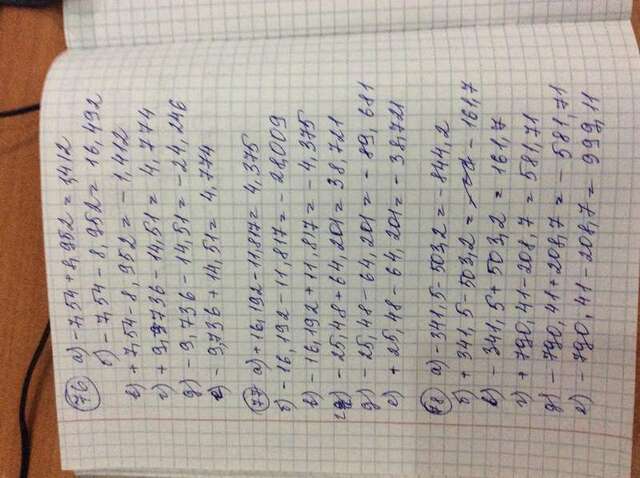 76 а) -7,54 + 8,952 = 1,412
б) -7,54 - 8,952 = 16,492
в) +7,54 - 8,952 = -1,412
г) +9,736 - 14,51 = 4,774
д) -9,736 - 14,51 = -24,246
е) -9,736 + 14,51 = 4,774
77 а) +16,192 - 11,817 = 4,375
б) -16,192 - 11,817 = -28,009
в) -16,192 + 11,817 = -4,375
г) -25,48 + 64,201 = 38,721
д) -25,48 - 64,201 = -89,681
е) +25,48 - 64,201 = -38,721
78 а) -341,5 - 503,2 = -844,2
б) +341,5 - 503,2 = -161,7
в) -341,5 + 503,2 = 161,7
г) +790,41 - 208,7 = 581,71
д) -790,41 + 208,7 = -581,71
е) -790,41 - 208,7 = 999,11